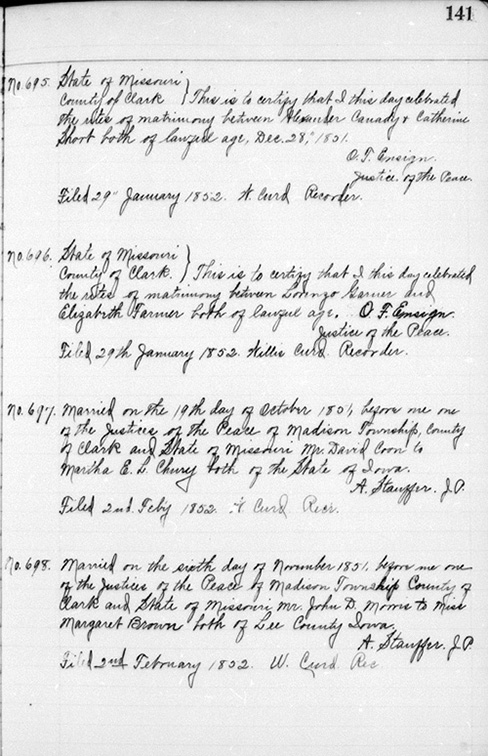 141
No. 695. State of Missouri
County of Clark } This is to certify that I this day celebrated
the rites of matrimony between Alexander Canady & Catherine
Shoot both of lawful age, Dec. 28," 1851.
O. F. Ensign.
Justice. of the Peace.
Filed 29" January 1852. W. Curd Recorder.
No. 696. State of Missouri
County of Clark. } This is to certify that I this day celebrated
the rites of matrimony between Lorenzo Garner and
Elizabeth Farmer both of lawful age. O. F. Ensign.
Justice of the Peace.
Filed 29th January 1852. Willis Curd. Recorder.
No. 697. Married on the 19th day of October 1851, before me one
of the Justices of the Peace of Madison Township, County
of Clark and State of Missouri Mr. David Coon to
Martha E. L. both of the State of Iowa.
A. Stauffer. J.P.
Filed 2nd. Feby 1852. W Curd Recr.
No. 698. Married on the sixth day of November 1851. before me one
of the Justices of the Peace of Madison Township County of
Clark and State of Missouri, Mr. John D. Morris to Miss
Margaret Brown both of Lee County Iowa.
A. Stauffer. J.P.
Filed 2nd February 1852. W. Curd Rec